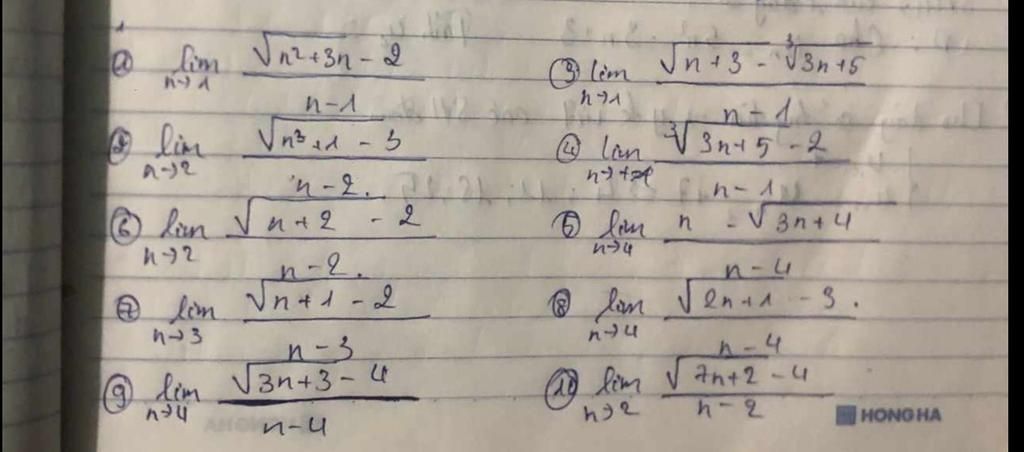 ① lim n→1 (√(n²+3n) - 2)/(n-1)
③ lim n→1 (√(n+3) - ∛(3n+5))/(n-1)
② lim n→2 (√(n³+1) - 3)/(n-2).
④ lim (∛(3n+5) - 2)/(n-1)
⑥ lim n→2 (√(n+2) - 2)/(n-2).
⑤ lim n→4 (n - √(3n+4))/(n-4)
⑦ lim n→3 (√(n+1) - 2)/(n-3)
⑧ lim n→4 (√(2n+1) - 3)/(n-4).
⑨ lim n→4 (√(3n+3) - 4)/(n-4)
⑩ lim n→2 (√(7n+2) - 4)/(n-2)
HONG HA